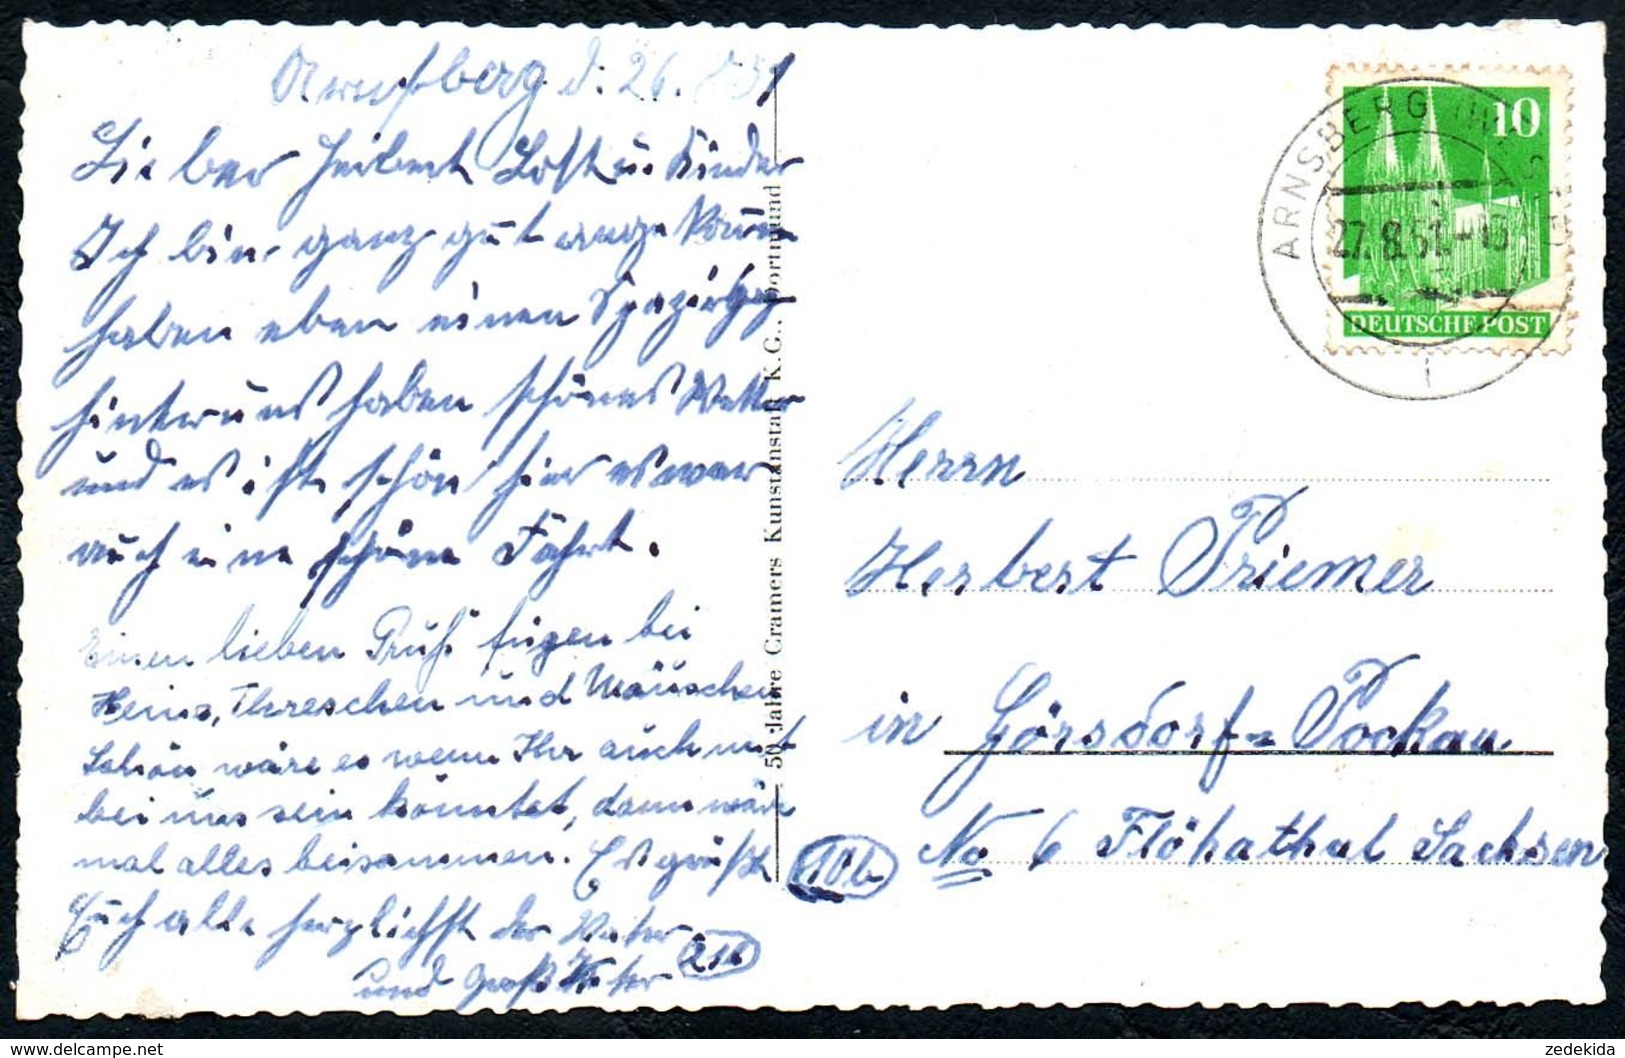 Arnsberg d. 26. 8 51
Lieber Herbert Lotte u. Kinder
Ich bin ganz gut angekomm
haben eben einen Spazirgg
hinter uns haben schönes Wetter
und es ist schön hier es war
auch eine schöne Fahrt.
Einen lieben Gruß fügen bei
Heinz, Threschen und Mäuschen
Schön wäre es wenn Ihr auch mit
bei uns sein könntet, dann wäre
mal alles beisammen. Es grüßt
Euch alle herzlichst der Vater
und Großvater
21b
50 Jahre Cramers Kunstanstalt K.G., Dortmund
ARNSBERG
27.8.51.-18
10
DEUTSCHE POST
Herrn
Herbert Priemer
in Görsdorf=Pockau
10b No 6 Flöhathal Sachsen
zedekida